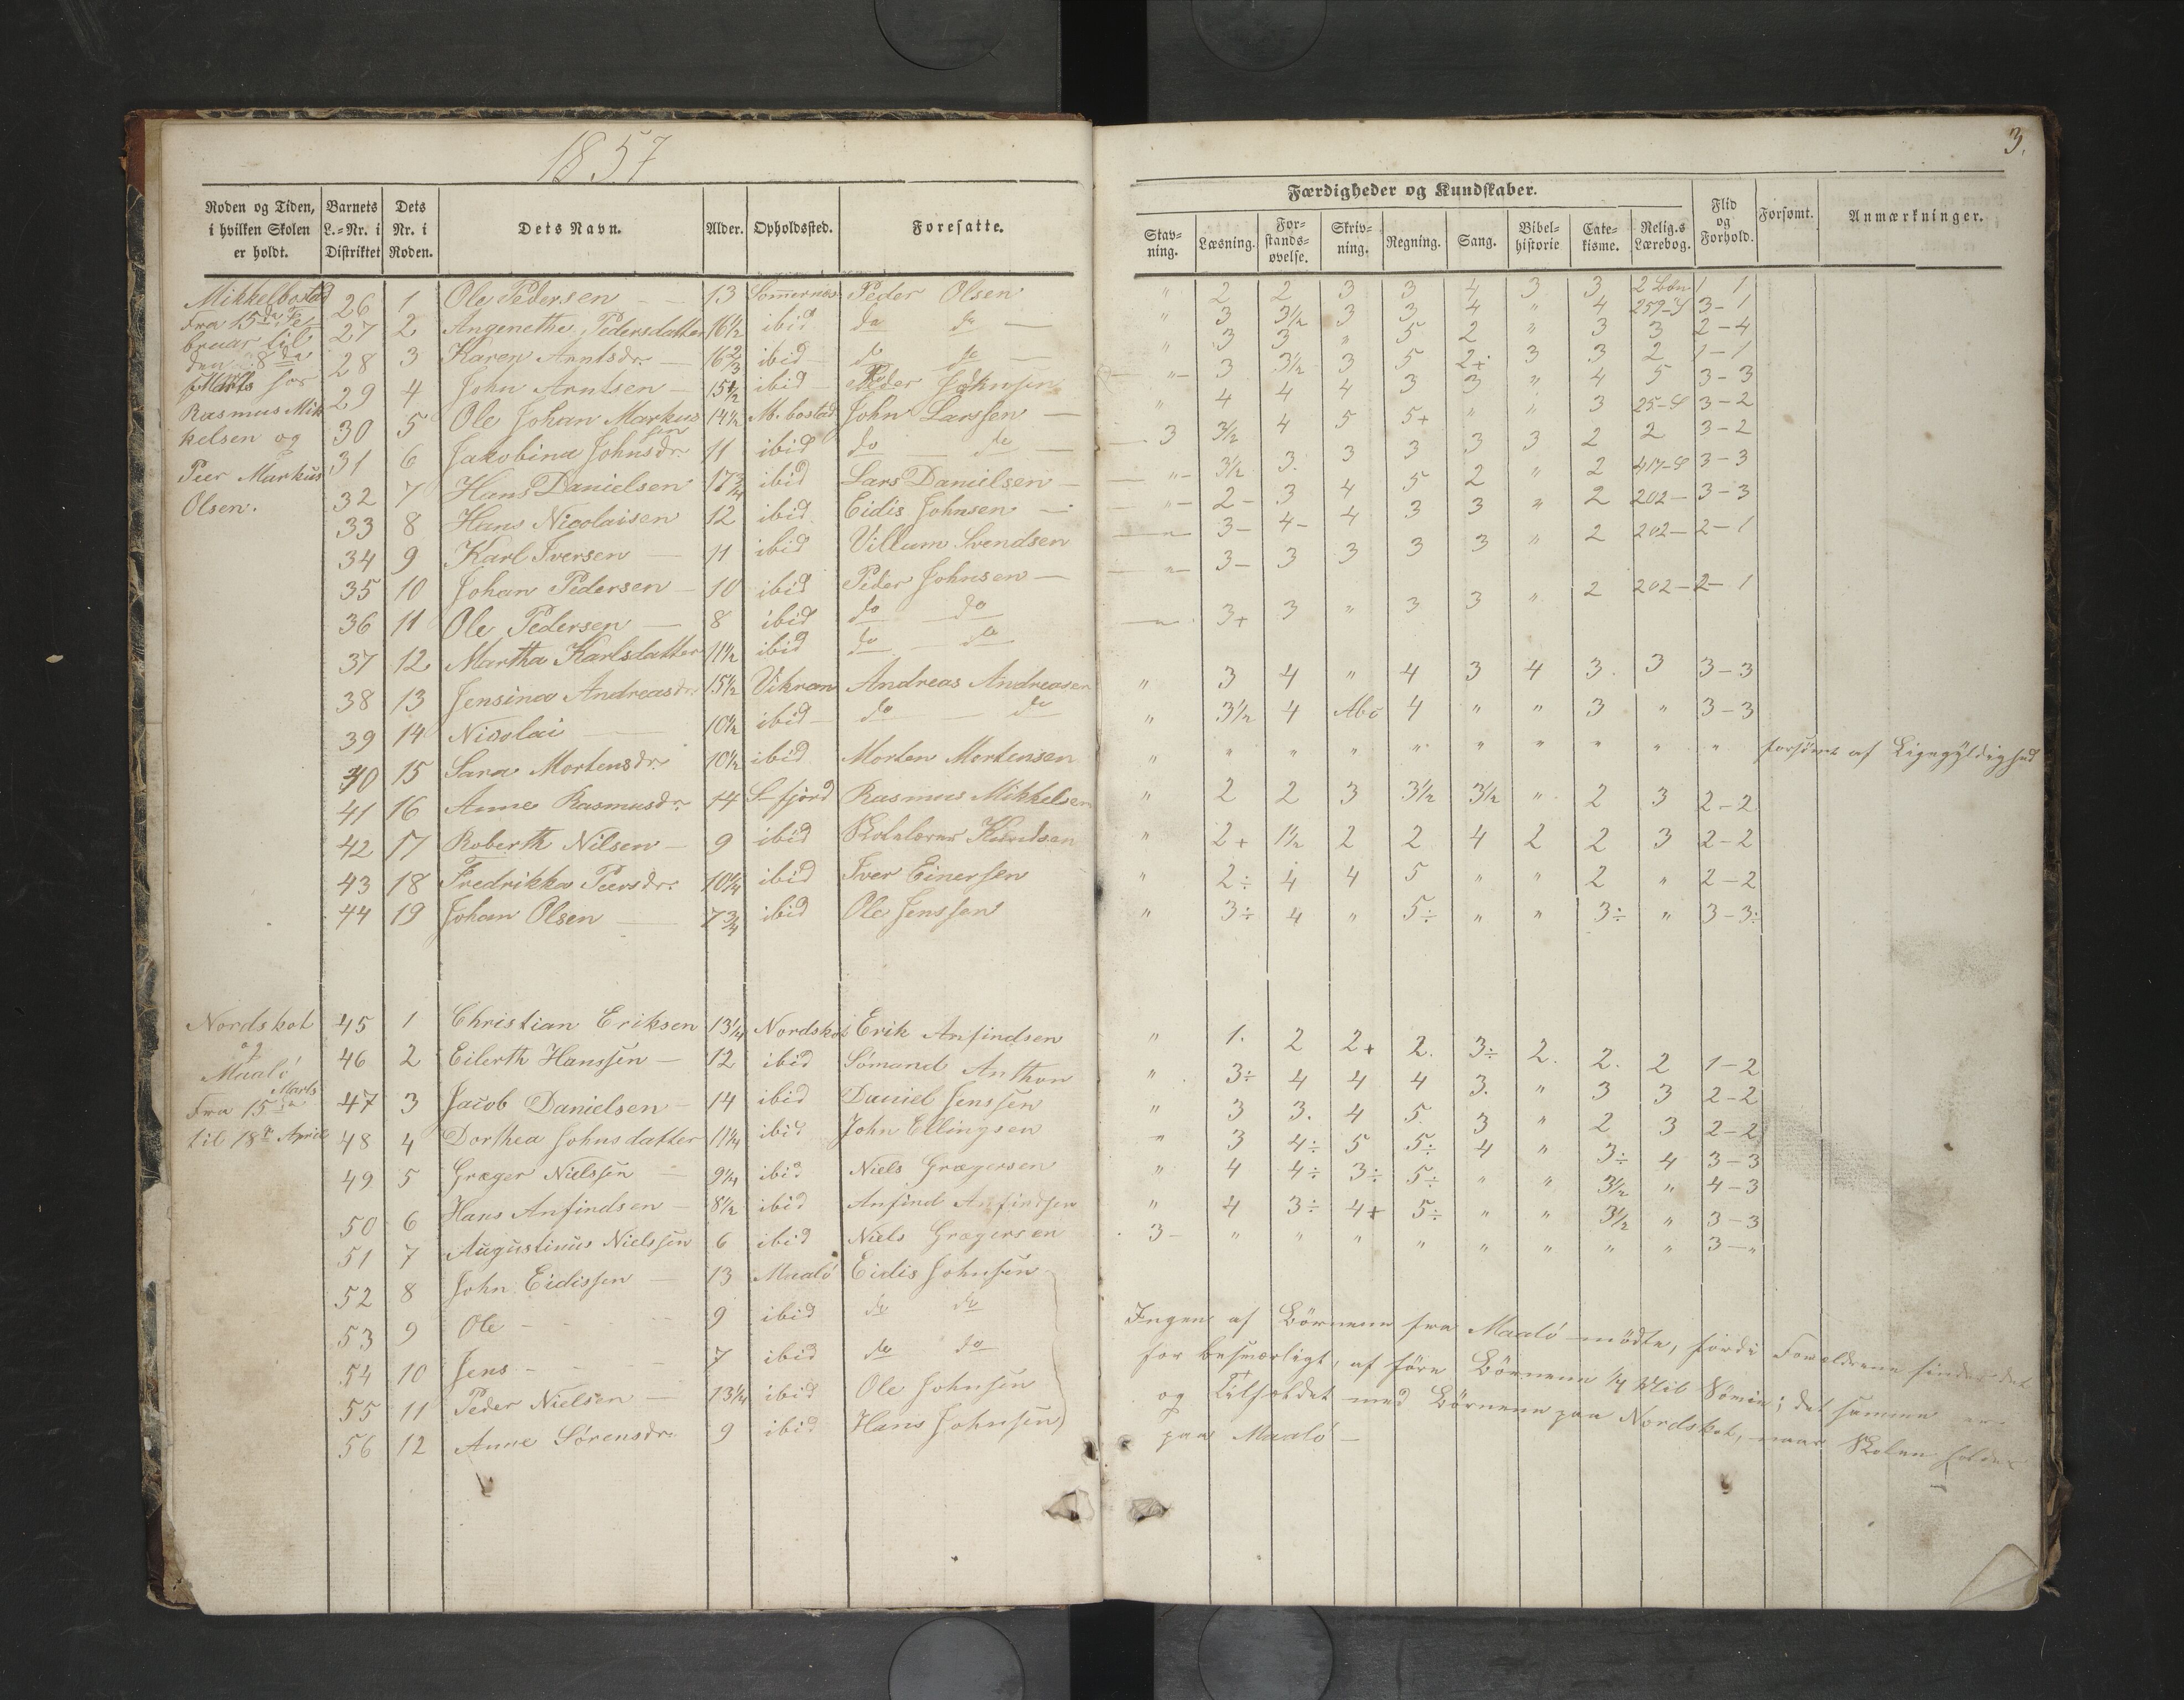 1857
3.
Roden og Tiden, i hvilken Skolen er holdt. Barnets L.-Nr. i Distriktet Dets Nr. i Roden. Dets Navn. Alder. Opholdssted. Foresatte.
Færdigheder og Kundskaber.
Stavning. Læsning. Forstandsøvelse. Skrivning. Regning. Sang. Bibelhistorie Catekisme. Relig.s Lærebog. Flid og Forhold. Forsømt. Anmærkninger.
Mikkelbostad
Fra 15de Fe-
bruar til
den 8de
Marts for
Rasmus Mik
kelsen og
Peer Markus
Olsen.
26 1 Ole Pedersen 13 Sommernes Peder Olsen
27 2 Angenethe Pedersdatter 16½ ibid do do
28 3 Karen Arntsdr. 16⅔ ibid do do
29 4 John Arntsen 15½ ibid Peder Johnsen
30 5 Ole Johan Markussen 14½ M.bostad John Larssen
31 6 Jakobina Johnsdr 11 ibid do do
32 7 Hans Danielsen 17¾ ibid Lars Danielsen
33 8 Hans Nicolaisen 12 ibid Eidis Johnsen
34 9 Karl Iversen 11 ibid Villum Svendsen
35 10 Johan Pedersen 10 ibid Peder Johnsen
36 11 Ole Pedersen 8 ibid do do
37 12 Martha Karlsdatter 11½ ibid do do
38 13 Jensina Andreasdr 15½ Vikran Andreas Andreasen
39 14 Nicolai 10½ ibid do do
40 15 Sara Mortensdr. 10½ ibid Morten Mortensen
41 16 Anne Rasmusdr. 14 S-fjord Rasmus Mikkelsen
42 17 Roberth Nilsen 9 ibid Skolelærer Knudsen
43 18 Fredrikka Peersdr. 10¼ ibid Iver Einersen
44 19 Johan Olsen 7¾ ibid Ole Jenssen
Nordskot
og
Maalö
Fra 15de Marts
til 18de April
45 1 Christian Eriksen 13¼ Nordskot Erik Anfindsen
46 2 Eilerth Hanssen 12 ibid Sömand Anthon
47 3 Jacob Danielsen 14 ibid Daniel Jenssen
48 4 Dorthea Johnsdatter 11¼ ibid John Ellingsen
49 5 Græger Nielssen 9¼ ibid Niels Grægersen
50 6 Hans Anfindsen 8½ ibid Anfind Anfindsen
51 7 Augustinus Nielssen 6 ibid Niels Grægersen
52 8 John Eidissen 13 Maalö Eidis Johnsen
53 9 Ole 9 ibid do do
54 10 Jens 7 ibid do do
55 11 Peder Nielsen 13¼ ibid Ole Johnsen
56 12 Anne Sörensdr. 9 ibid Hans Johnsen
" 2 2 3 3 4 3 3 1 1
" 3 3½ 3 3 4 " 4 3- 1
" 3 3 " 5 2 " 3 3 2-4
" 3 3½ 3 5 2÷ 3 3 2 1-1
" 4 4 4 3 3 " 4 5 3-3
3 3½ 4 5 5+ " " 3 3-2
" 3½ 3. 3 3 3 3 2 2 3-2
" 2- 3 4 5 2 " 2 3-3
" 3- 4- 4 3 3 " 2 202- 3-3
" 3- 3 3 3 3 " 2 202- 2-1
" 3+ 3 " 3 3 " 2 202- 2-1
" 3 4 " 4 3 4 3. 3 3-3
" 3½ 4 Abc 4 " " 3 " 3-3
" " " " " " " " " " forsömt af Ligegyldighed
" 2 2 3 3½ 3½ " 2 3 2-2
" 2+ 1½ 2 2 4 2 2 3 2-2
" 2÷ 4 4 5 " " 2 " 2-2
" 3÷ 4 " 5÷ " " 3÷ " 3-3÷
" 1. 2 2+ 2. 3÷ 2. 2. 2 1-2
" 3÷ 4 4 4 3. " 3 3 2-2
" 3 3. 4 5 3 " 2 3 2-2
" 3 4÷ 5 5÷ 4 " 3÷ 4 3-3
" 4 4÷ 3÷ 5÷ " " 3½ " 4-3
" 4 3÷ 4+ 5÷ " " 3½ " 3-3
3- " " " " " " " " 3-"
Ingen af Börnene fra Maalö mödte, fordi Forældrene finder det
for besværligt, at före Börnene ¼ Miil Söveien; det samme er
og Tilfældet med Börnene paa Nordskot, naar Skolen holdes
paa Maalö